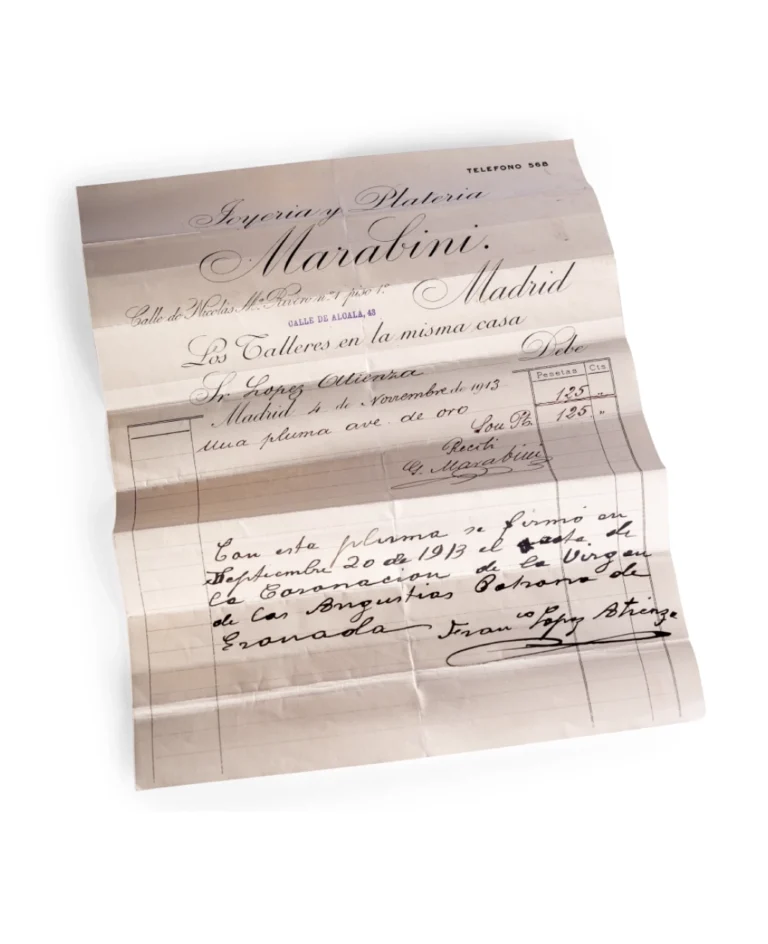 TELEFONO 568
Joyeria y Plateria
Marabini.
Calle de Nicolás Mª Rivero nº 1 piso 1º Madrid
CALLE DE ALCALÁ, 43
Los Talleres en la misma casa
Sr. Lopez Atienza Debe
Madrid 4 de Noviembre de 1913 Pesetas Cts
Una pluma ave de oro 125 "
Son Pts. 125 "
Recibi
G. Marabini
Con esta pluma se firmó en
Septiembre 20 de 1913 el acta de
la Coronacion de la Virgen
de las Angustias Patrona de
Granada Franco Lopez Atienza